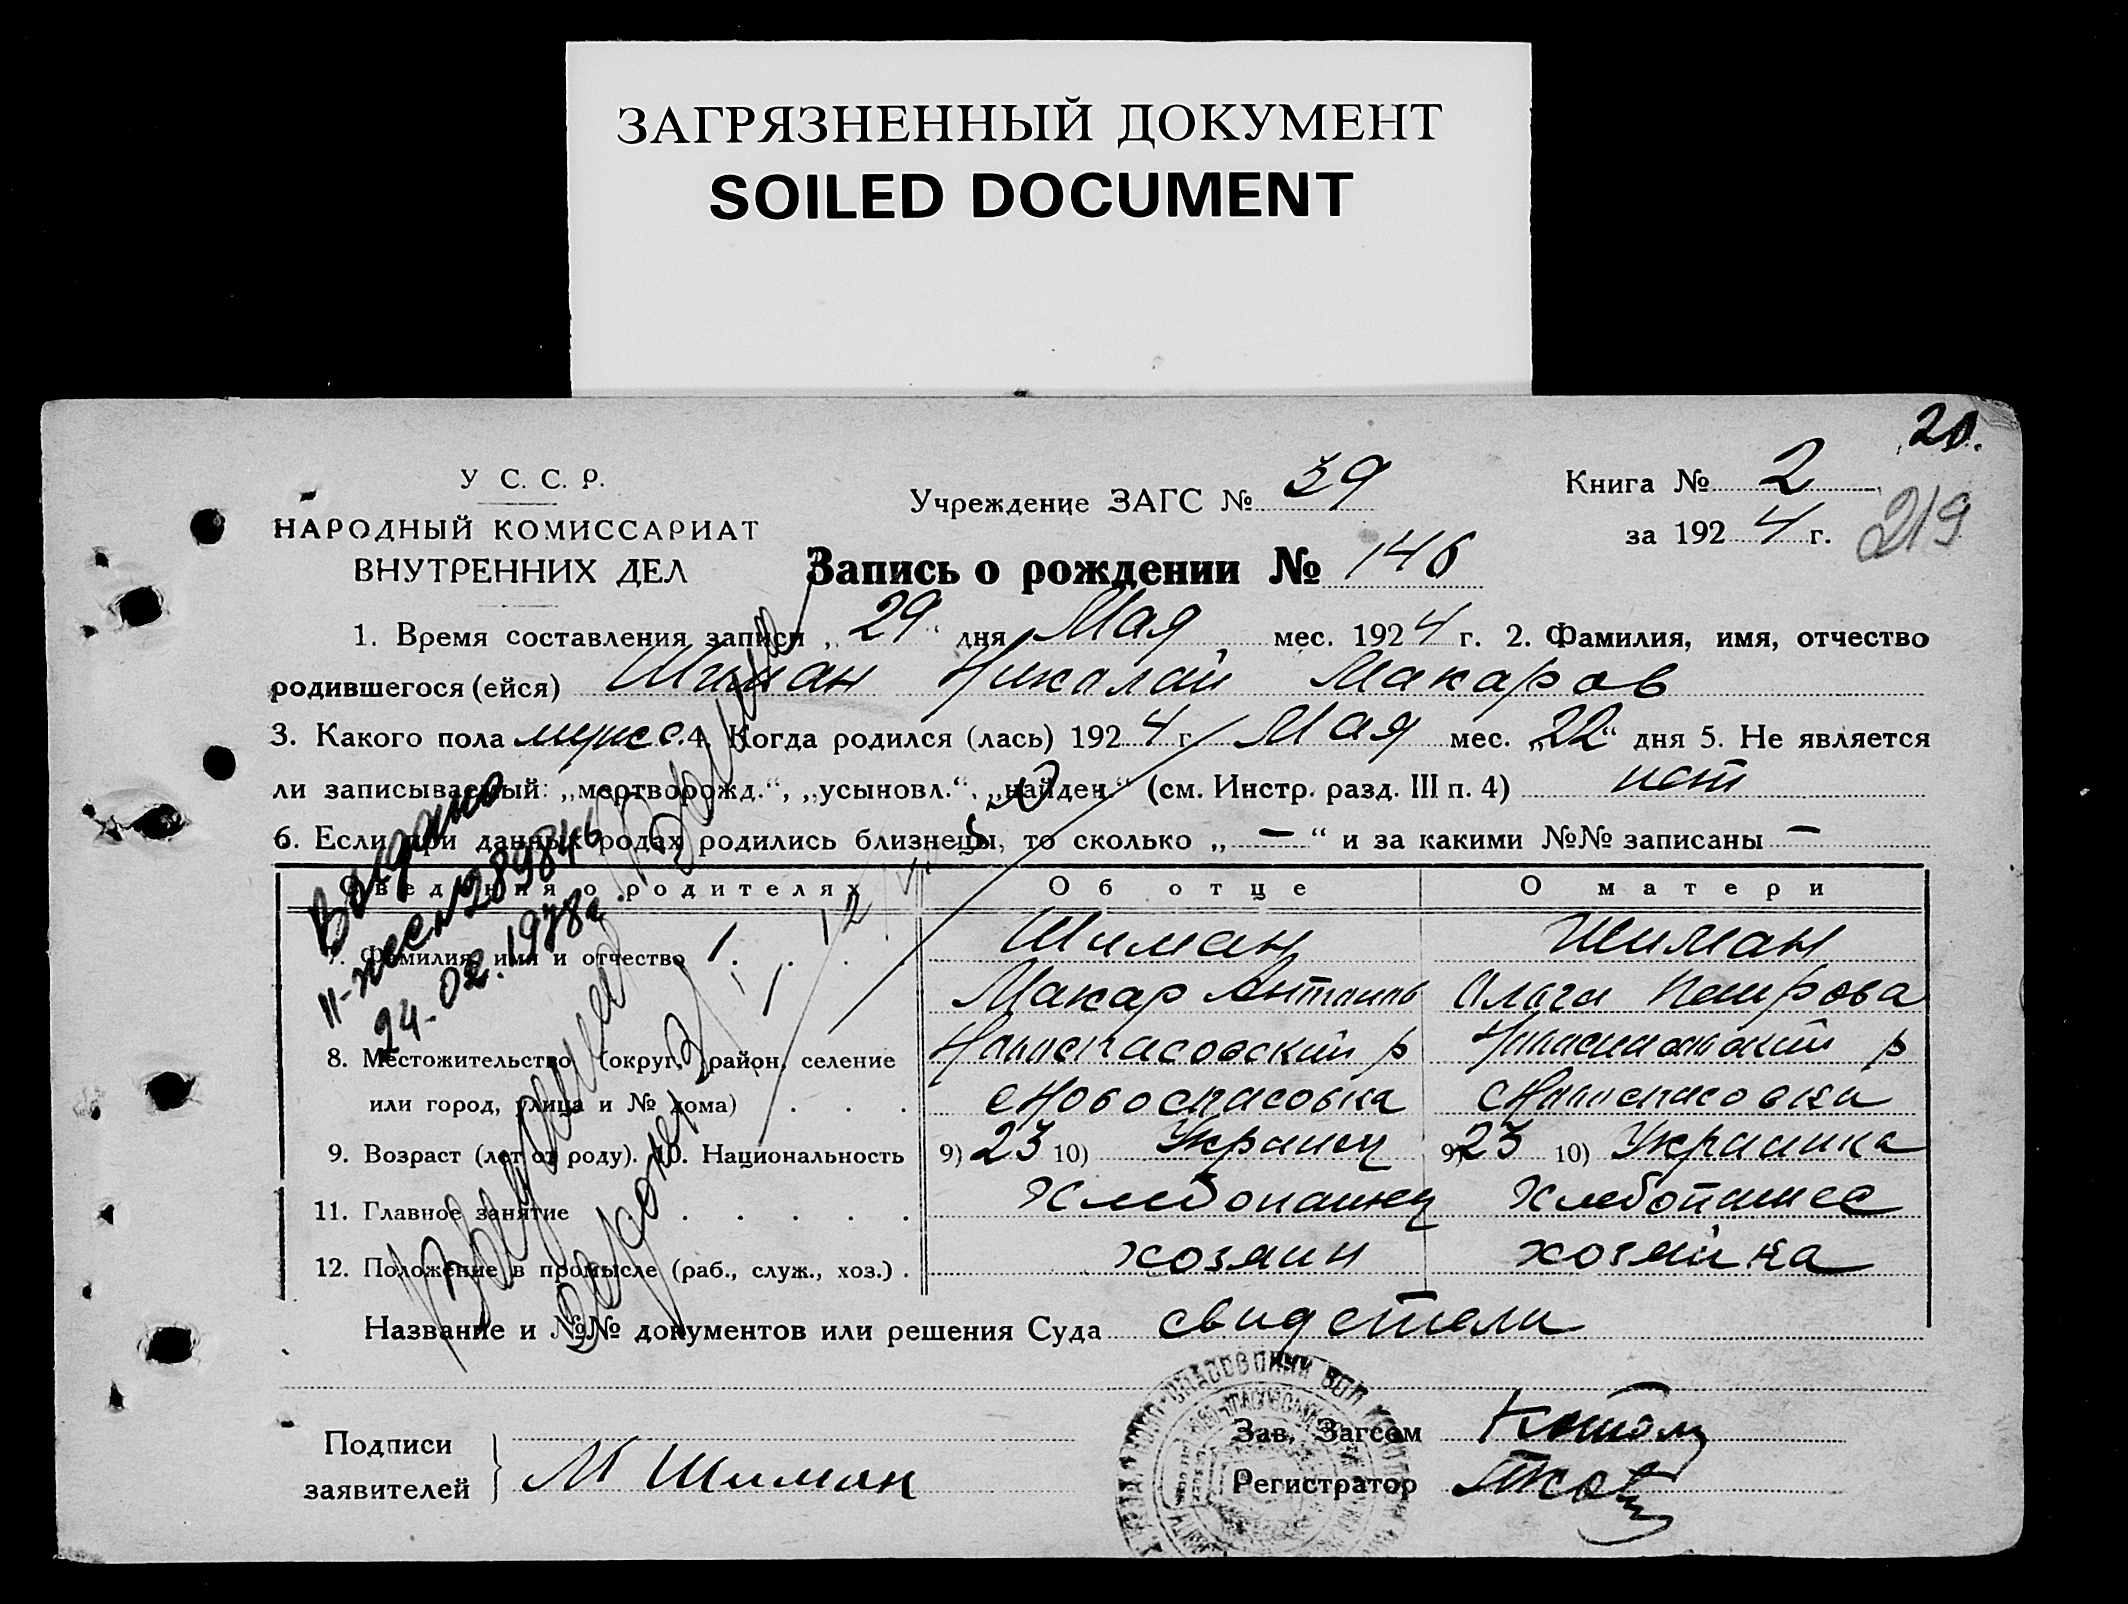 ЗАГРЯЗНЕННЫЙ ДОКУМЕНТ
SOILED DOCUMENT
20.
У С. С. Р.
НАРОДНЫЙ КОМИССАРИАТ
ВНУТРЕННИХ ДЕЛ
Учреждение ЗАГС № 39
Книга № 2
за 1924 г.
219
Запись о рождении № 146
1. Время составления записи „29“ дня Мая мес. 1924 г. 2. Фамилия, имя, отчество
родившегося (ейся) Шиман Николай Макаров
3. Какого пола мужс. 4. Когда родился (лась) 1924 г. Мая мес. „22“ дня 5. Не является
ли записываемый: „мертворожд.“, „усыновл.“, „найден.“ (см. Инстр. разд. III п. 4) нет
6. Если при данных родах родились близнецы, то сколько „—“ и за какими №№ записаны —
Выдано
24.02.1978г.
Сведения о родителях Об отце О матери
7. Фамилия, имя и отчество Шиман Шиман
Макар Антонов Ольга Петрова
8. Местожительство (округ, район, селение Новоспасовский р Новоспасовский р
или город, улица и № дома) с Новоспасовка с Новоспасовка
9. Возраст (лет от роду). 10. Национальность 9) 23 10) Украинец 9) 23 10) Украинка
11. Главное занятие Хлебопашец Хлебопашес
12. Положение в промысле (раб., служ., хоз.) хозяин хозяйка
Название и №№ документов или решения Суда свидетели
Подписи
заявителей М Шиман
Зав. Загсом
Регистратор